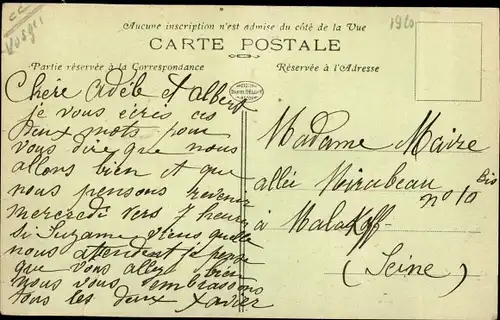 Vosges
1920
Aucune inscription n'est admise du côté de la Vue
CARTE POSTALE
Partie réservée à la Correspondance
Réservée à l'Adresse
Chère Adèle et Albert
je vous écris ces
deux mots pour
vous dire que nous
allons bien et que
nous pensons revenir
mercredi vers 7 heure
si Suzanne viens quelle
nous attendent je pense
que vous allez bien
nous vous embrassons
tous les deux Xavier
Madame Maire
allée Mirabeau
no 10 Bis
à Malakoff
(Seine)